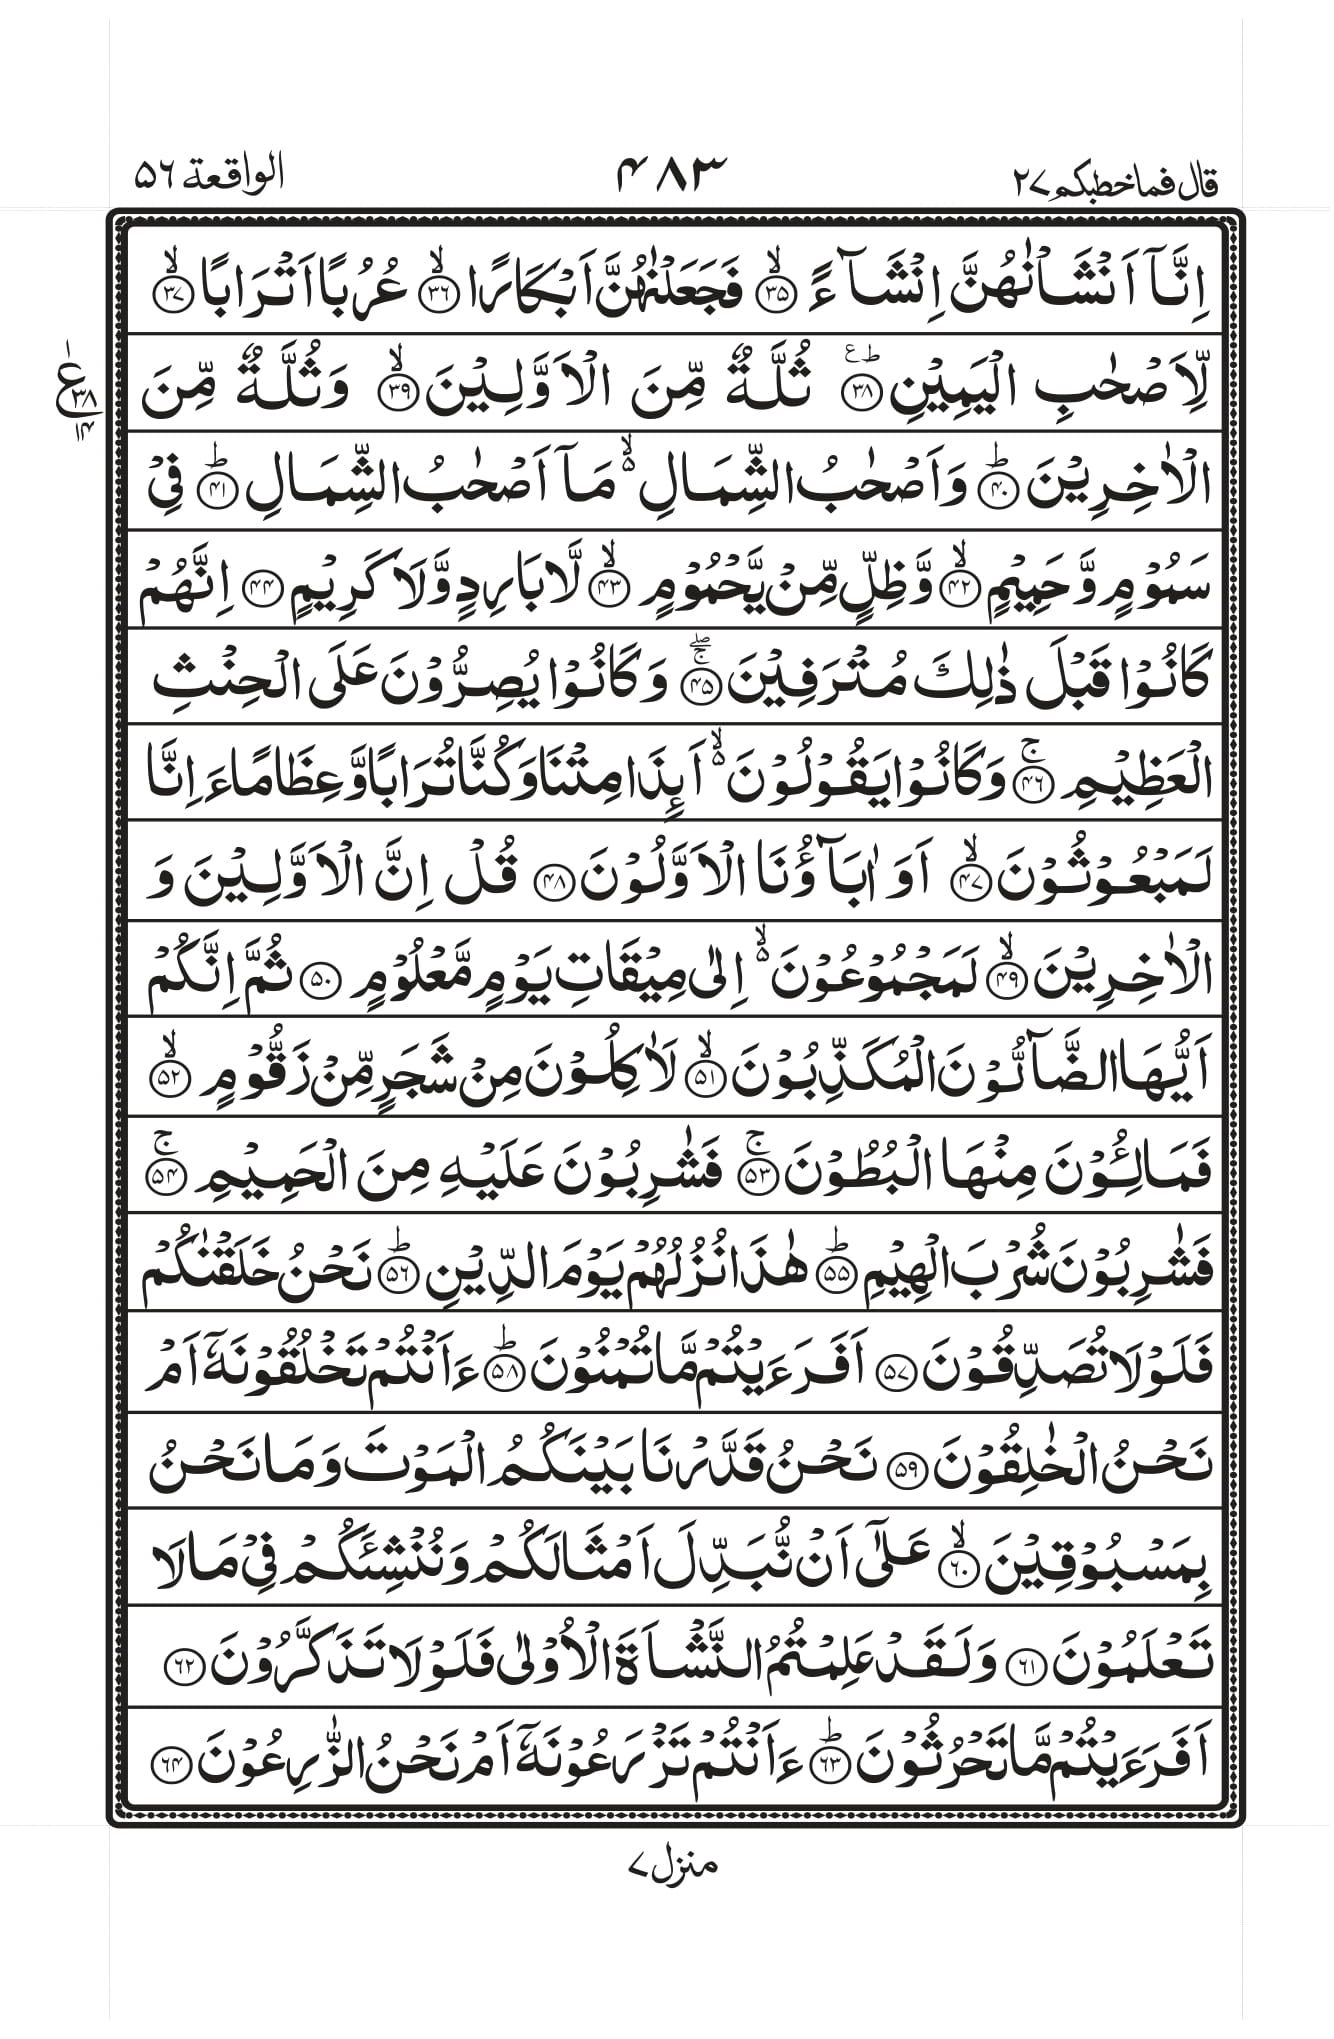 قال فماخطبکم ۲۷
۴۸۳
الواقعة ۵۶
اِنَّاۤ اَنْشَاْنٰهُنَّ اِنْشَآءً ۙ﴿۳۵﴾ فَجَعَلْنٰهُنَّ اَبْكَارًا ۙ﴿۳۶﴾ عُرُبًا اَتْرَابًا ۙ﴿۳۷﴾
لِّاَصْحٰبِ الْیَمِیْنِ ؕ٪﴿۳۸﴾ ثُلَّةٌ مِّنَ الْاَوَّلِیْنَ ۙ﴿۳۹﴾ وَثُلَّةٌ مِّنَ
ع ۱ ۳۸ ۱۴
الْاٰخِرِیْنَ ؕ﴿۴۰﴾ وَاَصْحٰبُ الشِّمَالِ ۙ۬ مَاۤ اَصْحٰبُ الشِّمَالِ ؕ﴿۴۱﴾ فِیْ
سَمُوْمٍ وَّحَمِیْمٍ ۙ﴿۴۲﴾ وَّظِلٍّ مِّنْ یَّحْمُوْمٍ ۙ﴿۴۳﴾ لَّا بَارِدٍ وَّلَا كَرِیْمٍ ﴿۴۴﴾ اِنَّهُمْ
كَانُوْا قَبْلَ ذٰلِكَ مُتْرَفِیْنَ ۚۖ﴿۴۵﴾ وَكَانُوْا یُصِرُّوْنَ عَلَی الْحِنْثِ
الْعَظِیْمِ ۚ﴿۴۶﴾ وَكَانُوْا یَقُوْلُوْنَ ۙ۬ اَىِٕذَا مِتْنَا وَكُنَّا تُرَابًا وَّعِظَامًا ءَاِنَّا
لَمَبْعُوْثُوْنَ ۙ﴿۴۷﴾ اَوَ اٰبَآؤُنَا الْاَوَّلُوْنَ ﴿۴۸﴾ قُلْ اِنَّ الْاَوَّلِیْنَ وَ
الْاٰخِرِیْنَ ۙ﴿۴۹﴾ لَمَجْمُوْعُوْنَ ۙ۬ اِلٰی مِیْقَاتِ یَوْمٍ مَّعْلُوْمٍ ﴿۵۰﴾ ثُمَّ اِنَّكُمْ
اَیُّهَا الضَّآلُّوْنَ الْمُكَذِّبُوْنَ ۙ﴿۵۱﴾ لَاٰكِلُوْنَ مِنْ شَجَرٍ مِّنْ زَقُّوْمٍ ۙ﴿۵۲﴾
فَمَالِـُٔوْنَ مِنْهَا الْبُطُوْنَ ۚ﴿۵۳﴾ فَشٰرِبُوْنَ عَلَیْهِ مِنَ الْحَمِیْمِ ۚ﴿۵۴﴾
فَشٰرِبُوْنَ شُرْبَ الْهِیْمِ ؕ﴿۵۵﴾ هٰذَا نُزُلُهُمْ یَوْمَ الدِّیْنِ ؕ﴿۵۶﴾ نَحْنُ خَلَقْنٰكُمْ
فَلَوْلَا تُصَدِّقُوْنَ ﴿۵۷﴾ اَفَرَءَیْتُمْ مَّا تُمْنُوْنَ ؕ﴿۵۸﴾ ءَاَنْتُمْ تَخْلُقُوْنَهٗۤ اَمْ
نَحْنُ الْخٰلِقُوْنَ ﴿۵۹﴾ نَحْنُ قَدَّرْنَا بَیْنَكُمُ الْمَوْتَ وَمَا نَحْنُ
بِمَسْبُوْقِیْنَ ۙ﴿۶۰﴾ عَلٰۤی اَنْ نُّبَدِّلَ اَمْثَالَكُمْ وَنُنْشِئَكُمْ فِیْ مَا لَا
تَعْلَمُوْنَ ﴿۶۱﴾ وَلَقَدْ عَلِمْتُمُ النَّشْاَةَ الْاُوْلٰی فَلَوْلَا تَذَكَّرُوْنَ ﴿۶۲﴾
اَفَرَءَیْتُمْ مَّا تَحْرُثُوْنَ ؕ﴿۶۳﴾ ءَاَنْتُمْ تَزْرَعُوْنَهٗۤ اَمْ نَحْنُ الزّٰرِعُوْنَ ﴿۶۴﴾
منزل ۷